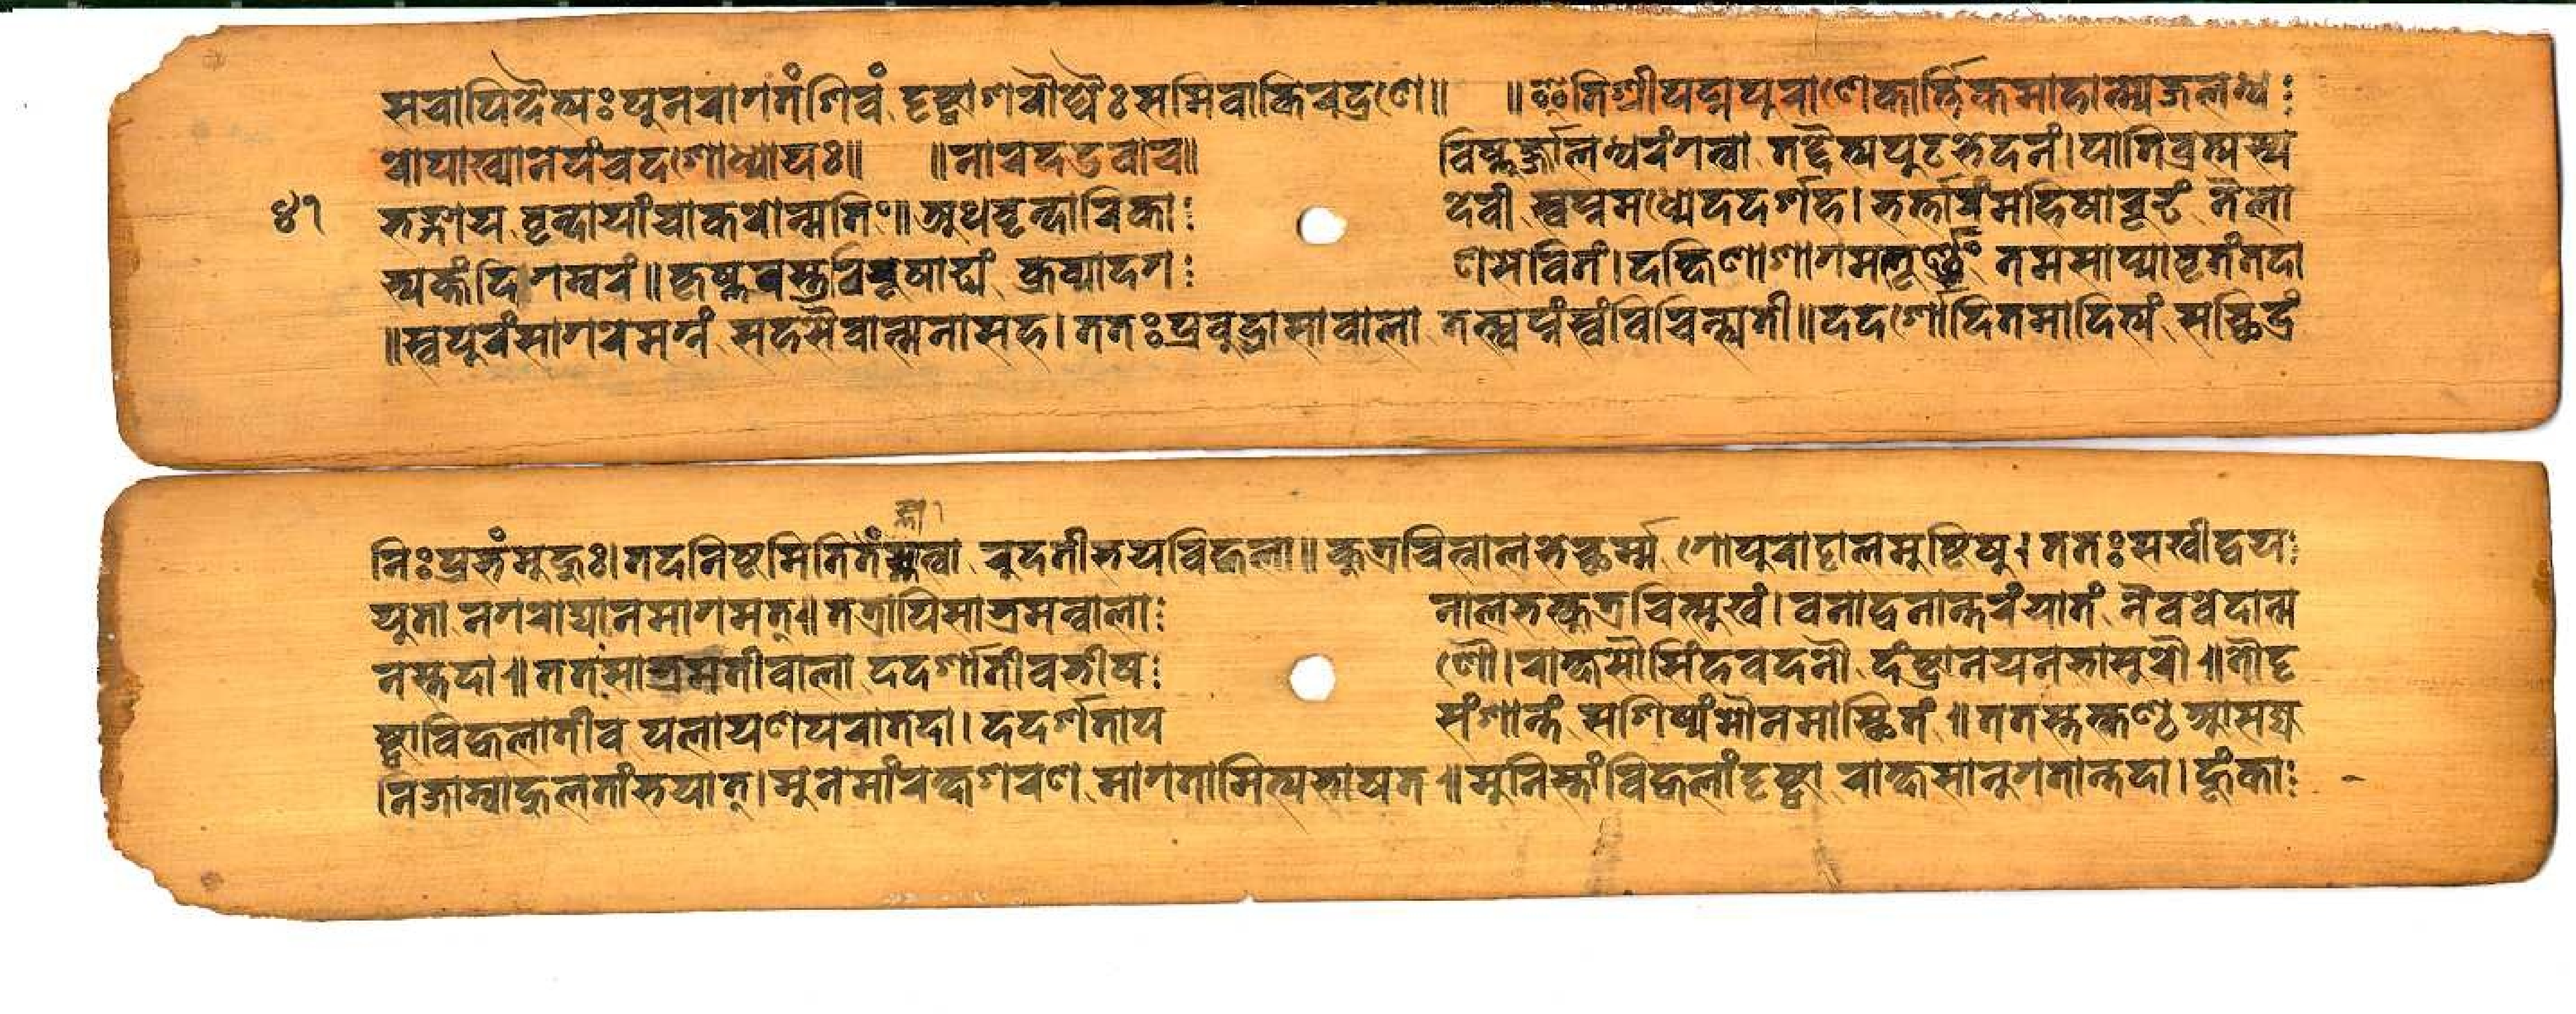 स चापि दैत्यः पुनरागतं शिवं दृष्ट्वा शरौघैः समिवाकिरद्रणे॥ ॥इति श्रीपद्मपुराणे कार्त्तिकमाहात्म्ये जलन्ध
रोपाख्याने पंचदशोध्यायः॥ ॥नारद उवाच॥ विष्णुर्ज्जालन्धरं गत्वा तद्दैत्यपुटभेदनं। पातिव्रत्यस्य
४१ भङ्गाय वृन्दायां चाकरोन्मतिं॥ अथ वृन्दारिका देवी स्वप्नमध्ये ददर्श ह। भर्त्तारं महिषारूढं तैला
भ्यक्तं दिगम्बरं॥ कृष्णवस्त्रविभूषाढ्यं क्रव्यादगणसेवितं। दक्षिणाशागमत्तूर्ण्णं तमसाप्यावृतं तदा
॥स्वपुरं सागरे मग्नं सहसैवात्मना सह। ततः प्रबुद्धा सा बाला तत्स्वप्नं स्वं विचिन्त्यती॥ ददर्शोदितमादित्यं सच्छिद्रं
निःप्रभं मुहुः। तदनिष्टमिति तं ज्ञात्वा रुदती भयविह्वला॥ कुत्रचिन्नालभेच्छर्म्म गोपुराट्टालमुष्टिषु। ततः सखीद्वय
युता नगरोद्यानमागमत्॥ तत्रापि सा भ्रमन्बाला नालभत्कुत्रचित्सुखं। वनाद्वनान्तरं यातं नैव वेदात्म
नस्तदा॥ ततः सा भ्रमती बाला ददर्शातीव भीषणौ। राक्षसौ सिंहवदनौ दंष्ट्रानयनभासुरौ॥ तौ दृ
ष्ट्वा विह्वलातीव पलायणपरा तदा। ददर्श तापसं शान्तं सशिष्यं मौनमास्थितं॥ ततस्तत्कण्ठ आसज्य
निजाम्बाहुलतां भयात्। मुने मां रक्ष शरण मागतामित्यभाषत॥ मुनिस्तां विह्वलां दृष्ट्वा राक्षसानुगतान्तदा। हूंका